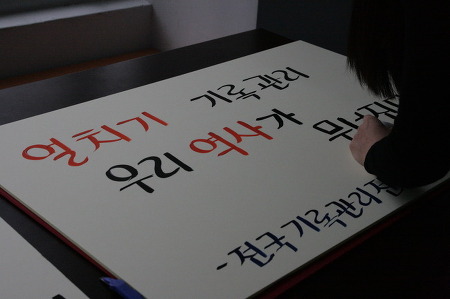 얼치기 기록관리
우리 역사가 무너
- 전국기록관리전